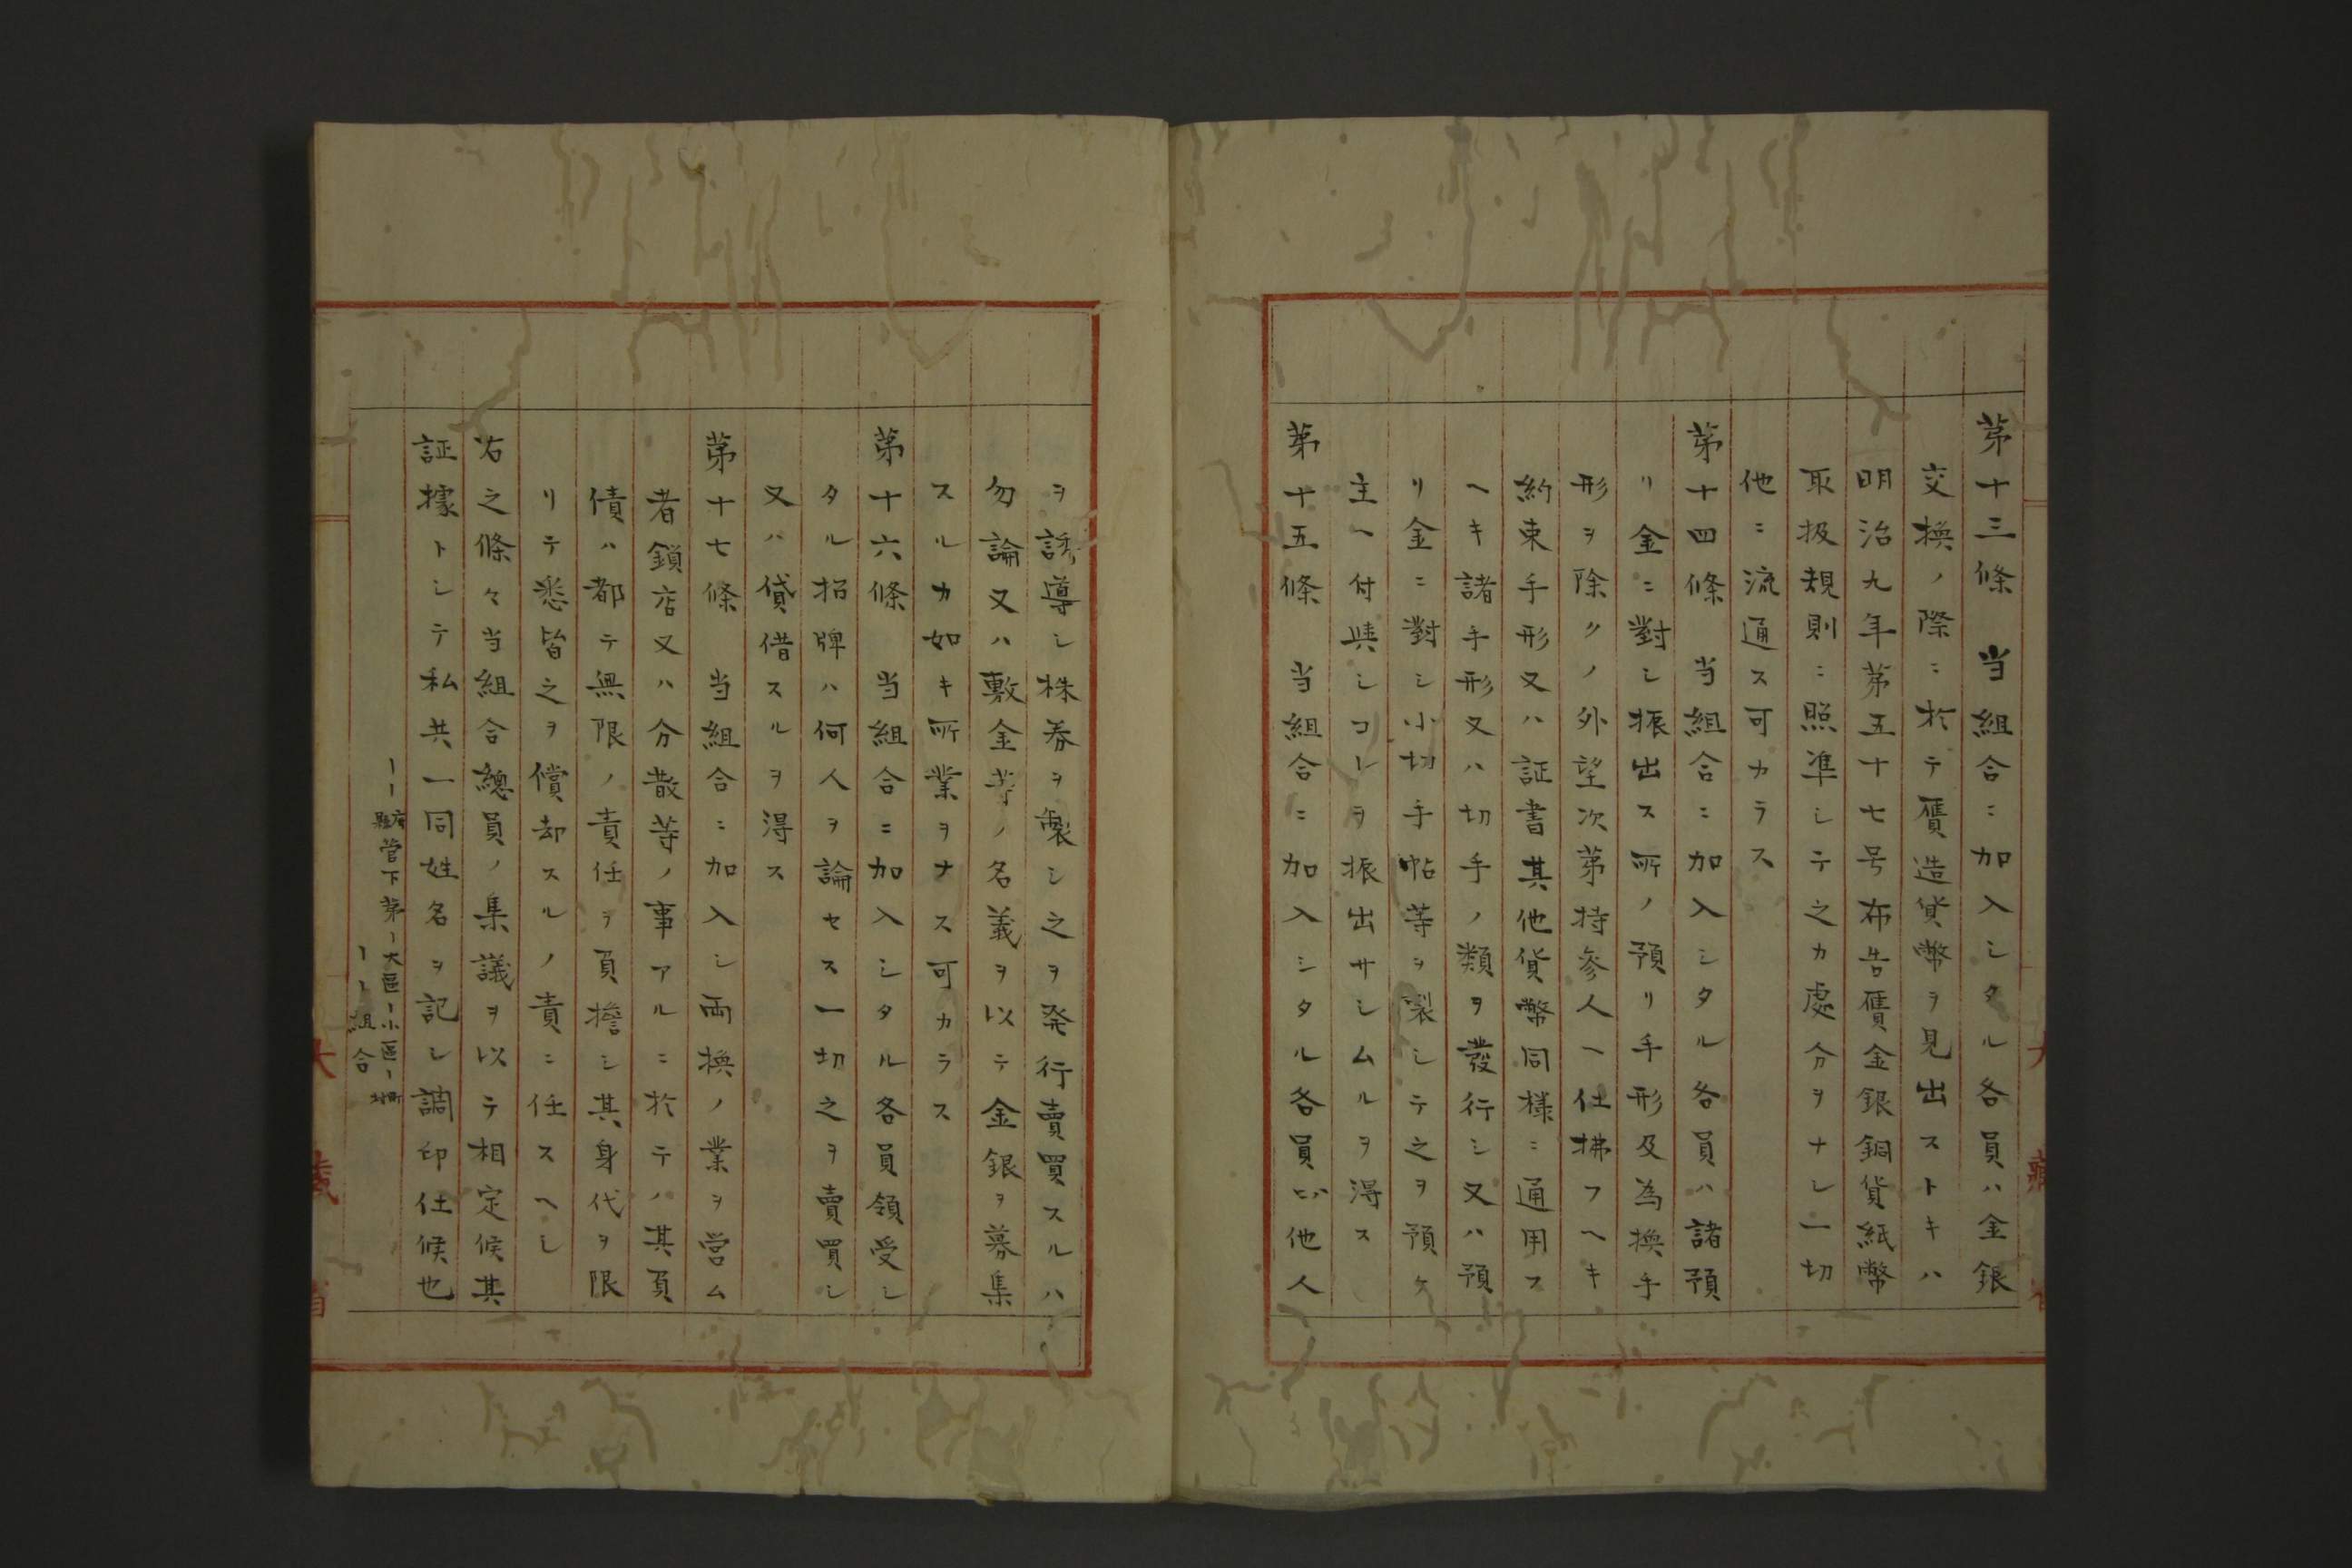 第十三條　当組合ニ加入シタル各員ハ金銀
交換ノ際ニ於テ贋造貨幣ヲ見出ストキハ
明治九年第五十七号布告贋金銀銅貨紙幣
取扱規則ニ照準シテ之カ處分ヲナシ一切
他ニ流通ス可カラス
第十四條　当組合ニ加入シタル各員ハ諸預
リ金ニ對シ振出ス所ノ預リ手形及為換手
形ヲ除クノ外望次第持參人ヘ仕拂フヘキ
約束手形又ハ証書其他貨幣同様ニ通用ス
ヘキ諸手形又ハ切手ノ類ヲ發行シ又ハ預
リ金ニ對シ小切手帖等ヲ製シテ之ヲ預ケ
主ヘ付與シコレヲ振出サシムルヲ得ス
第十五條　当組合ニ加入シタル各員ハ他人
ヲ誘導シ株券ヲ製シ之ヲ発行賣買スルハ
勿論又ハ敷金等ノ名義ヲ以テ金銀ヲ募集
スルカ如キ所業ヲナス可カラス
第十六條　当組合ニ加入シタル各員領受シ
タル招牌ハ何人ヲ論セス一切之ヲ賣買シ
又ハ貸借スルヲ得ス
第十七條　当組合ニ加入シ両換ノ業ヲ営ム
者鎖店又ハ分散等ノ事アルニ於テハ其負
債ハ都テ無限ノ責任ヲ負擔シ其身代ヲ限
リテ悉皆之ヲ償却スルノ責ニ任スヘシ
右之條々当組合總員ノ集議ヲ以テ相定候其
証據トシテ私共一同姓名ヲ記シ調印仕候也
ーー府縣管下第ー大區ー小區ー町村
ーー組合
大藏省